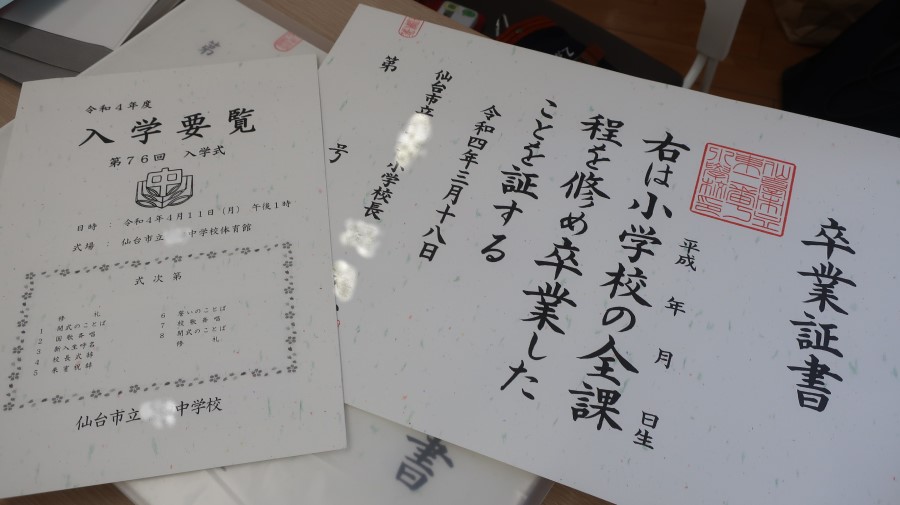 令和4年度
入学要覧
第76回 入学式
中
日時 : 令和4年4月11日(月) 午後1時
式場 : 仙台市立 中学校体育館
式次第
修礼
1 開式のことば
2 国歌斉唱
3 新入生呼名
4 校長式辞
5 来賓祝辞
6 誓いのことば
7 校歌斉唱
8 閉式のことば
修礼
仙台市立 中学校
卒業証書
平成 年 月 日生
右は小学校の全課
程を修め卒業した
ことを証する
令和四年三月十八日
仙台市立 小学校長
第 号
書